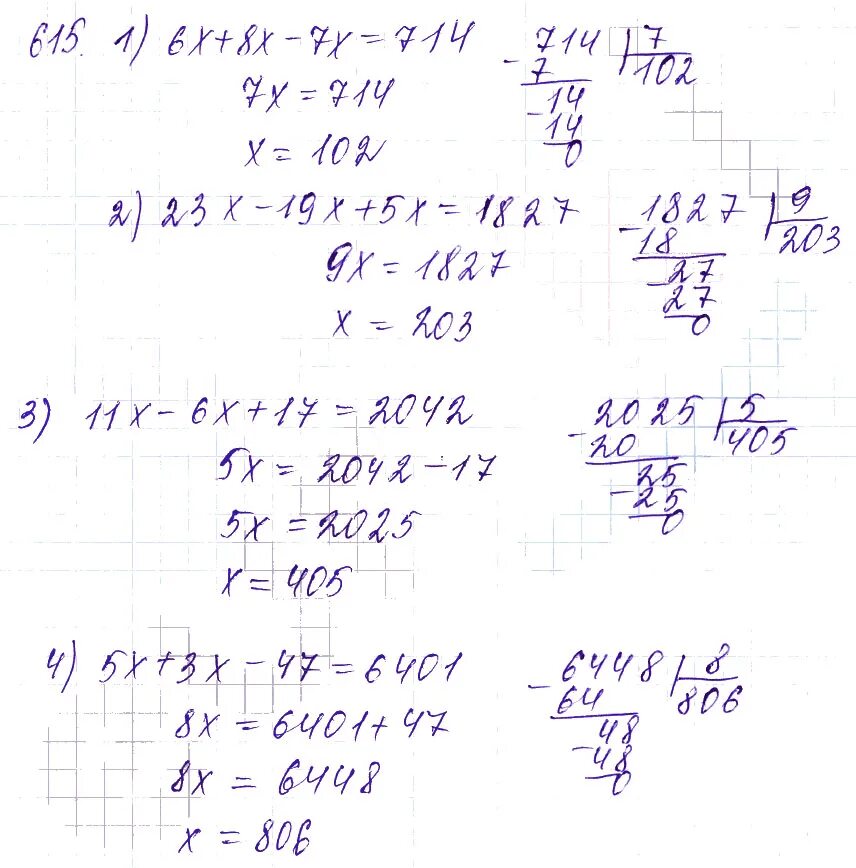 615. 1) 6x+8x-7x=714
7x=714
x=102
-714 | 7
7 102
-14
14
0
2) 23x-19x+5x=1827
9x=1827
x=203
-1827 | 9
18 203
-27
27
0
3) 11x-6x+17=2042
5x=2042-17
5x=2025
x=405
-2025 | 5
20 405
-25
25
0
4) 5x+3x-47=6401
8x=6401+47
8x=6448
x=806
-6448 | 8
64 806
-48
48
0